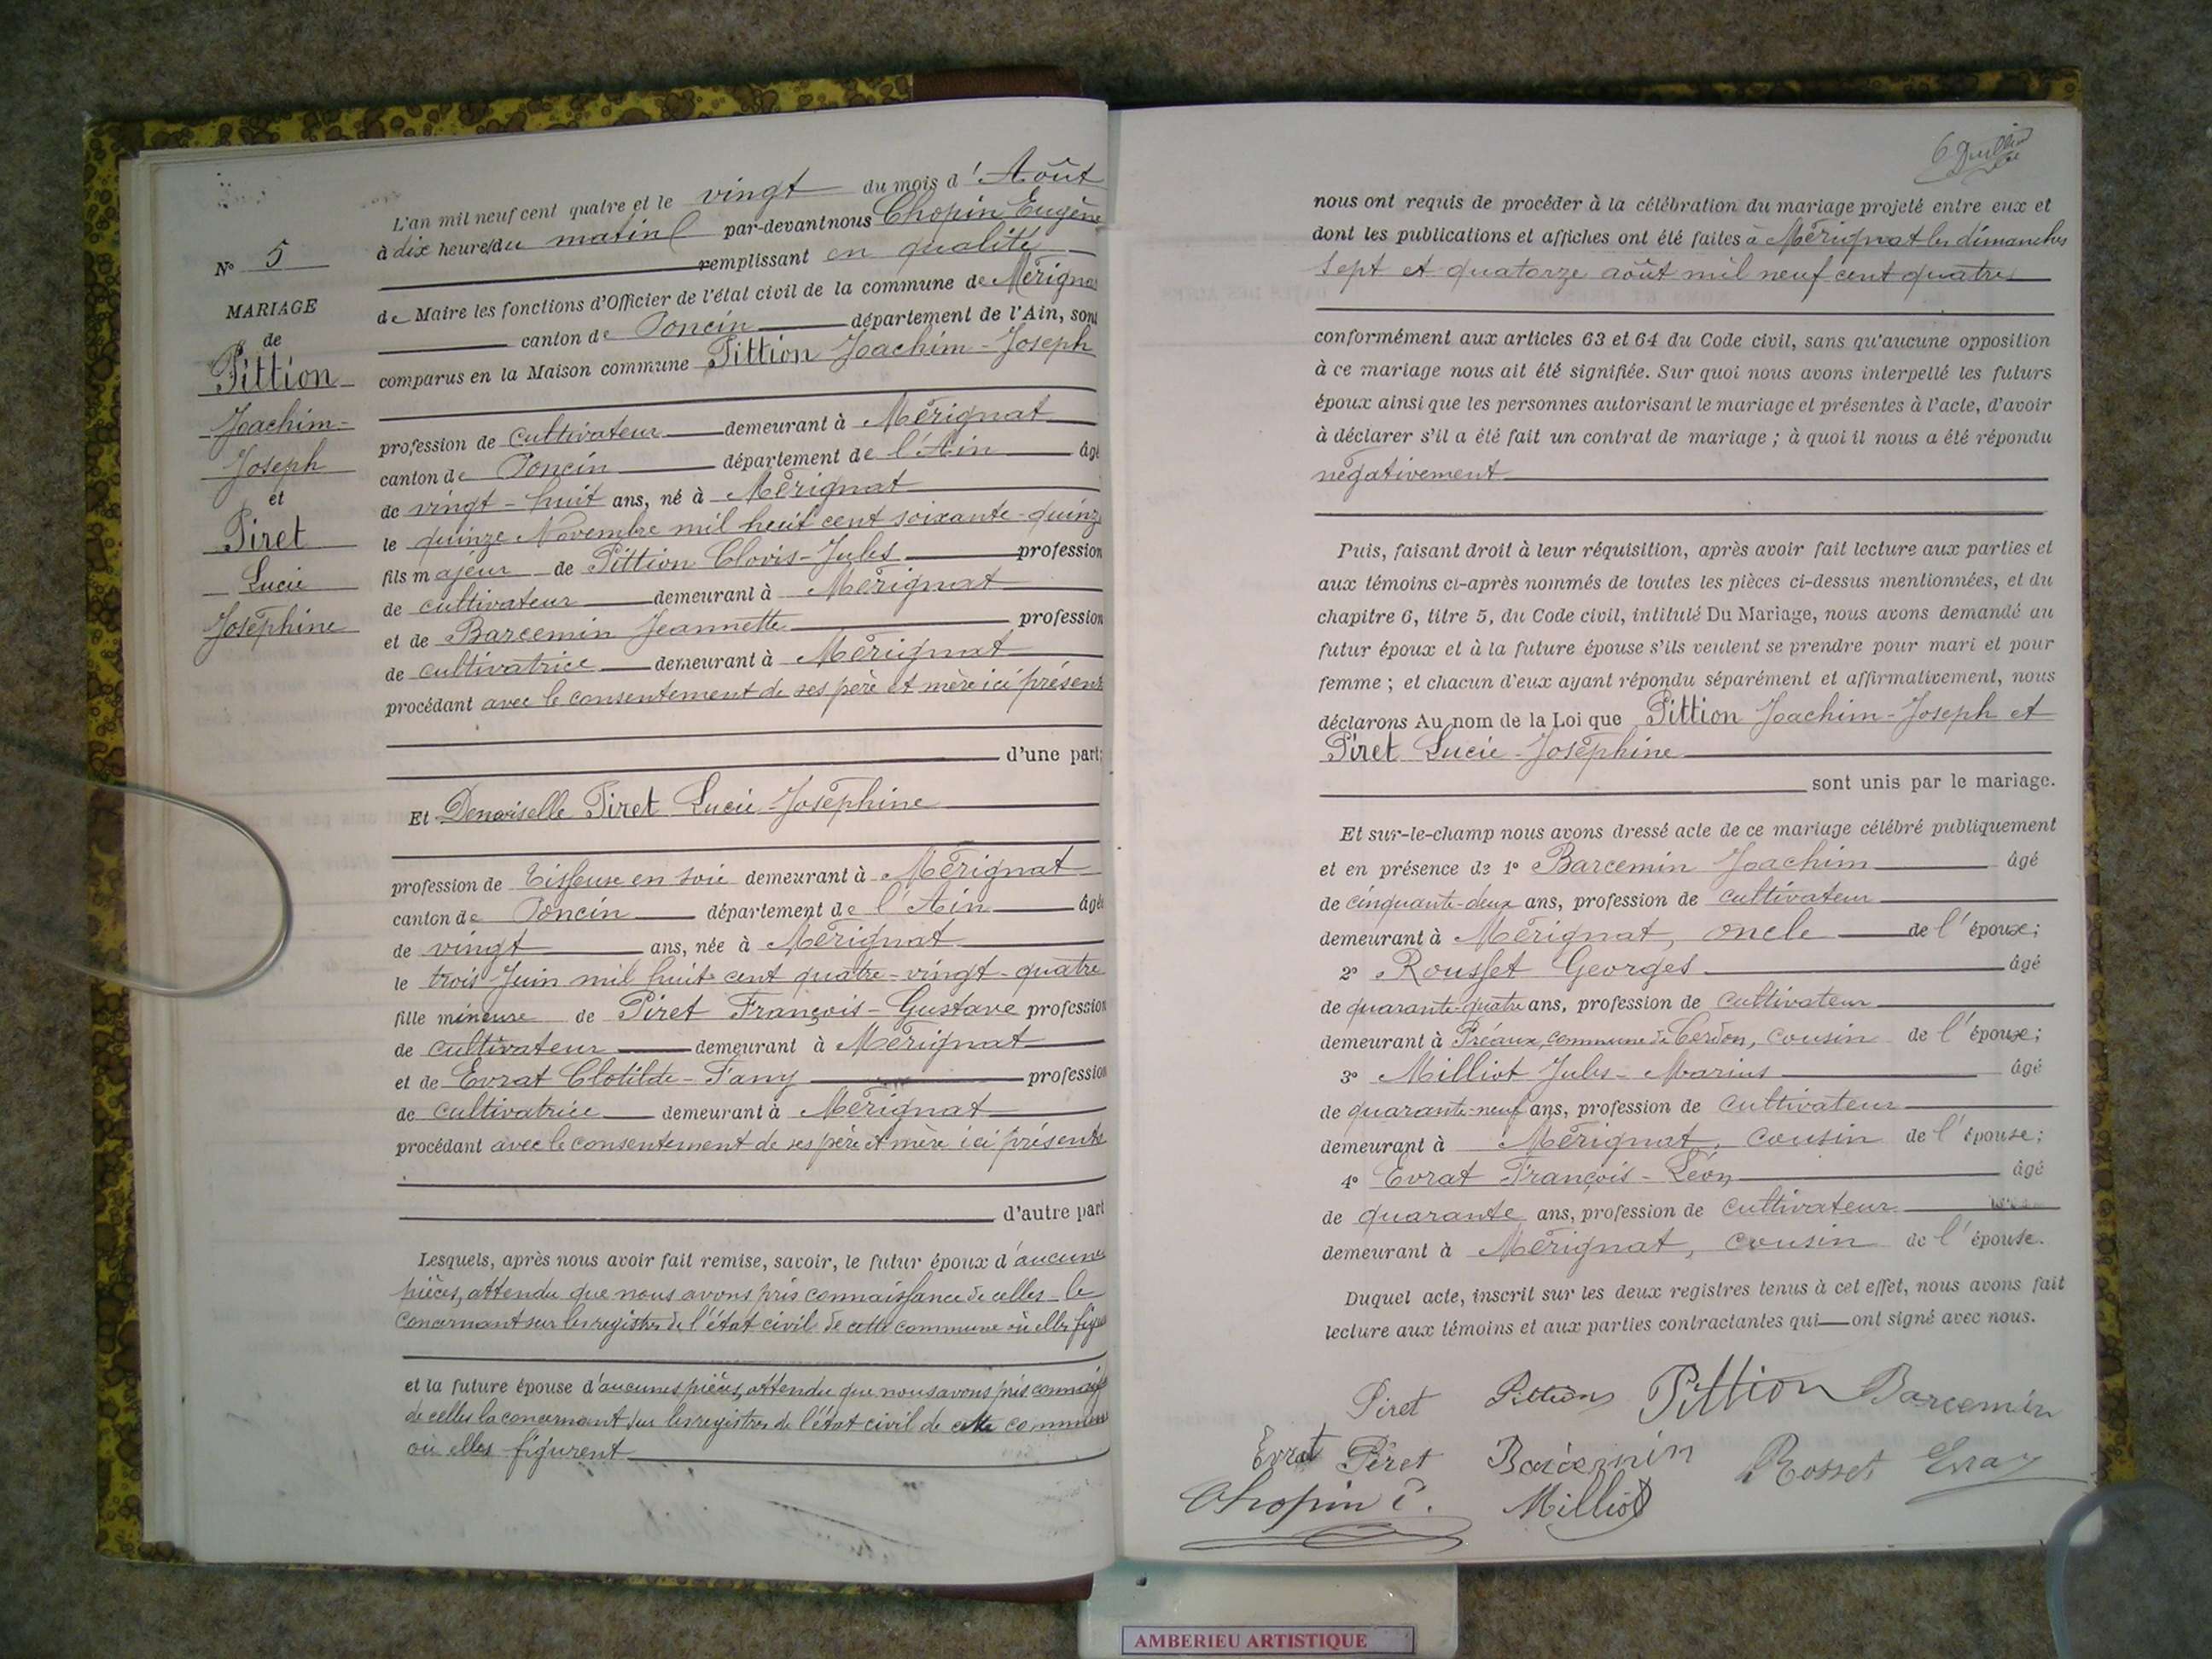 N° 5
MARIAGE
de
Pittion
Joachim-
Joseph
et
Piret
Lucie
Joséphine
L'an mil neuf cent quatre et le vingt du mois d'Août
à dix heures du matin par-devant nous Chopin Eugène
remplissant en qualité
de Maire les fonctions d'Officier de l'état civil de la commune de Mérignat
canton de Poncin département de l'Ain, sont
comparus en la Maison commune Pittion Joachim-Joseph
profession de cultivateur demeurant à Mérignat
canton de Poncin département de l'Ain âgé
de vingt-huit ans, né à Mérignat
le quinze Novembre mil huit cent soixante-quinze
fils majeur de Pittion Clovis-Jules profession
de cultivateur demeurant à Mérignat
et de Barcemin Jeannette profession
de cultivatrice demeurant à Mérignat
procédant avec le consentement de ses père et mère ici présents
d'une part;
Et Demoiselle Piret Lucie-Joséphine
profession de Tisseuse en soie demeurant à Mérignat
canton de Poncin département de l'Ain âgée
de vingt ans, née à Mérignat
le trois Juin mil huit cent quatre-vingt-quatre
fille mineure de Piret François-Gustave profession
de cultivateur demeurant à Mérignat
et de Evrat Clotilde-Fany profession
de cultivatrice demeurant à Mérignat
procédant avec le consentement de ses père et mère ici présents
d'autre part
Lesquels, après nous avoir fait remise, savoir, le futur époux d'aucunes
pièces, attendu que nous avons pris connaissance de celles le
concernant sur les registres de l'état civil de cette commune où elles figu
et la future épouse d'aucunes pièces, attendu que nous avons pris connaiss
de celles la concernant sur les registres de l'état civil de cette commune
où elles figurent
6
nous ont requis de procéder à la célébration du mariage projeté entre eux et
dont les publications et affiches ont été faites à Mérignat les dimanches
sept et quatorze août mil neuf cent quatre
conformément aux articles 63 et 64 du Code civil, sans qu'aucune opposition
à ce mariage nous ait été signifiée. Sur quoi nous avons interpellé les futurs
époux ainsi que les personnes autorisant le mariage et présentes à l'acte, d'avoir
à déclarer s'il a été fait un contrat de mariage ; à quoi il nous a été répondu
négativement
Puis, faisant droit à leur réquisition, après avoir fait lecture aux parties et
aux témoins ci-après nommés de toutes les pièces ci-dessus mentionnées, et du
chapitre 6, titre 5, du Code civil, intitulé Du Mariage, nous avons demandé au
futur époux et à la future épouse s'ils veulent se prendre pour mari et pour
femme ; et chacun d'eux ayant répondu séparément et affirmativement, nous
déclarons Au nom de la Loi que Pittion Joachim-Joseph et
Piret Lucie-Joséphine
sont unis par le mariage.
Et sur-le-champ nous avons dressé acte de ce mariage célébré publiquement
et en présence de 1° Barcemin Joachim âgé
de cinquante-deux ans, profession de cultivateur
demeurant à Mérignat, oncle de l'époux;
2° Rousset Georges âgé
de quarante-quatre ans, profession de cultivateur
demeurant à Préaux, commune de Cerdon, cousin de l'époux;
3° Milliot Jules-Marius âgé
de quarante-neuf ans, profession de cultivateur
demeurant à Mérignat, cousin de l'épouse;
4° Evrat François-Léon âgé
de quarante ans, profession de cultivateur
demeurant à Mérignat, cousin de l'épouse.
Duquel acte, inscrit sur les deux registres tenus à cet effet, nous avons fait
lecture aux témoins et aux parties contractantes qui ont signé avec nous.
Piret Pittion Pittion Barcemin
Evrat Piret Barcemin Rosset Evrat
Chopin E. Milliot
AMBERIEU ARTISTIQUE